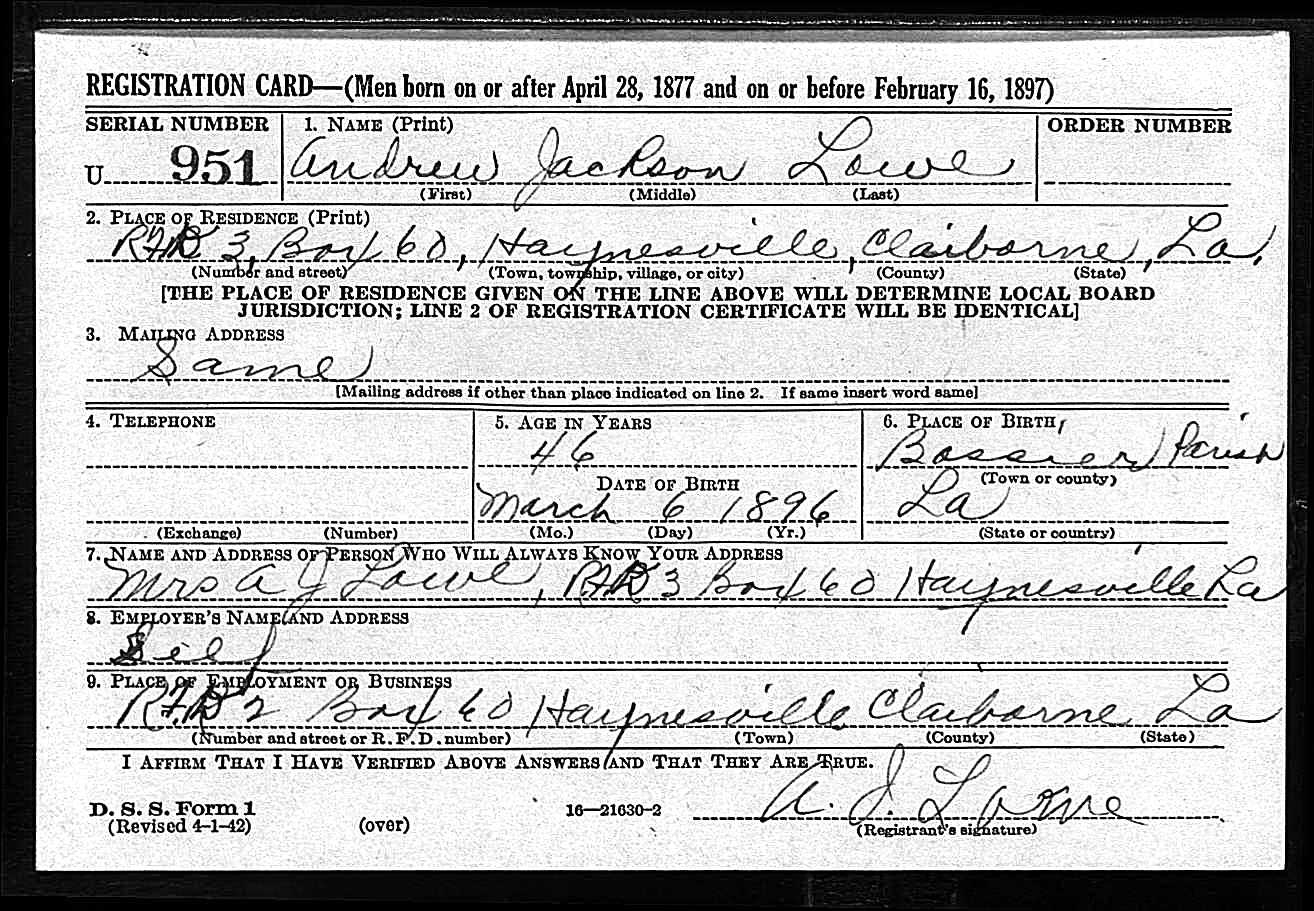 REGISTRATION CARD—(Men born on or after April 28, 1877 and on or before February 16, 1897)
SERIAL NUMBER
1. NAME (Print)
ORDER NUMBER
U 951
Andrew Jackson Lowe
(First) (Middle) (Last)
2. PLACE OF RESIDENCE (Print)
RFD 3, Box 60, Haynesville, Claiborne, La,
(Number and street) (Town, township, village, or city) (County) (State)
[THE PLACE OF RESIDENCE GIVEN ON THE LINE ABOVE WILL DETERMINE LOCAL BOARD
JURISDICTION; LINE 2 OF REGISTRATION CERTIFICATE WILL BE IDENTICAL]
3. MAILING ADDRESS
Same
[Mailing address if other than place indicated on line 2. If same insert word same]
4. TELEPHONE
(Exchange) (Number)
5. AGE IN YEARS
46
DATE OF BIRTH
March 6 1896
(Mo.) (Day) (Yr.)
6. PLACE OF BIRTH
Bossier Parish
(Town or county)
La
(State or country)
7. NAME AND ADDRESS OF PERSON WHO WILL ALWAYS KNOW YOUR ADDRESS
Mrs A J Lowe, RFD 3 Box 60 Haynesville La
8. EMPLOYER'S NAME AND ADDRESS
Self
9. PLACE OF EMPLOYMENT OR BUSINESS
RFD 2 Box 60 Haynesville Claiborne La
(Number and street or R. F. D. number) (Town) (County) (State)
I AFFIRM THAT I HAVE VERIFIED ABOVE ANSWERS AND THAT THEY ARE TRUE.
A. J. Lowe
D. S. S. Form 1
(Revised 4-1-42) (over) 16—21630-2 (Registrant's signature)